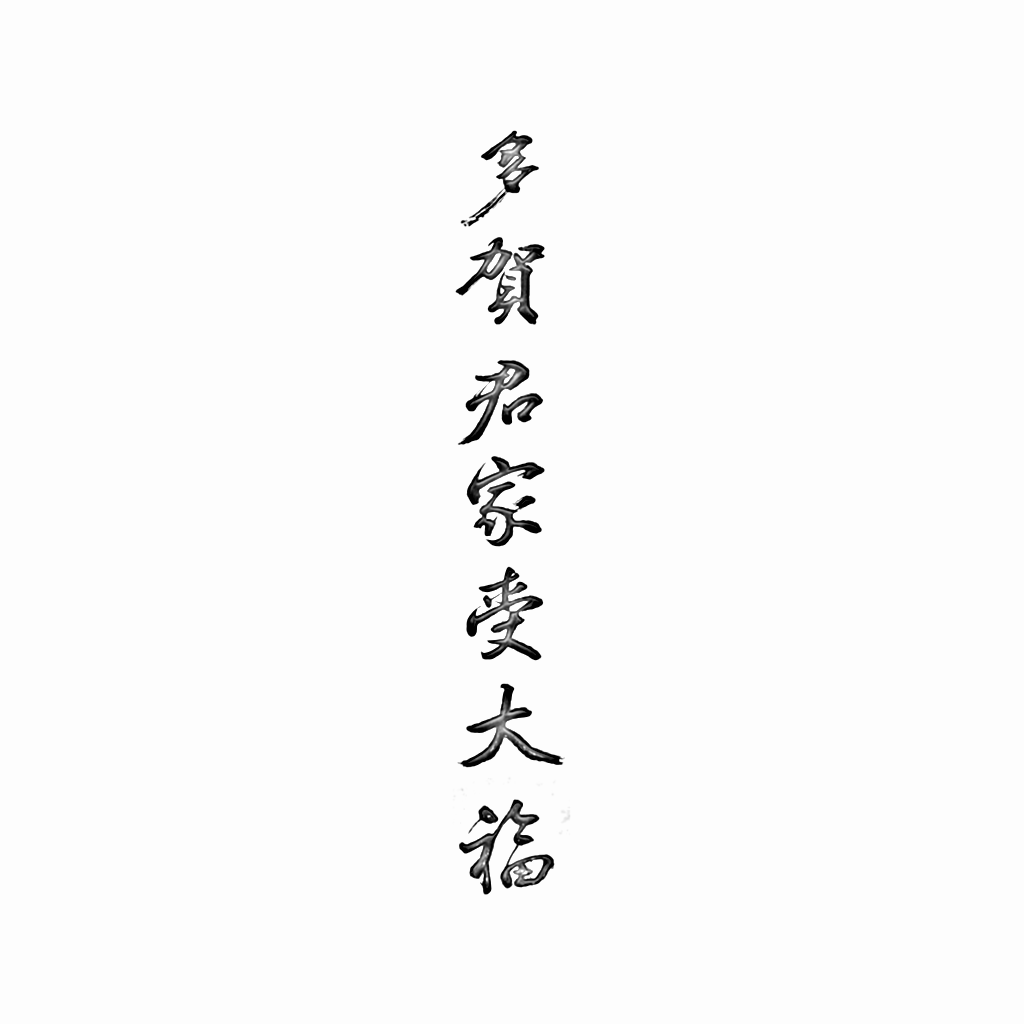 多賀君家受大福